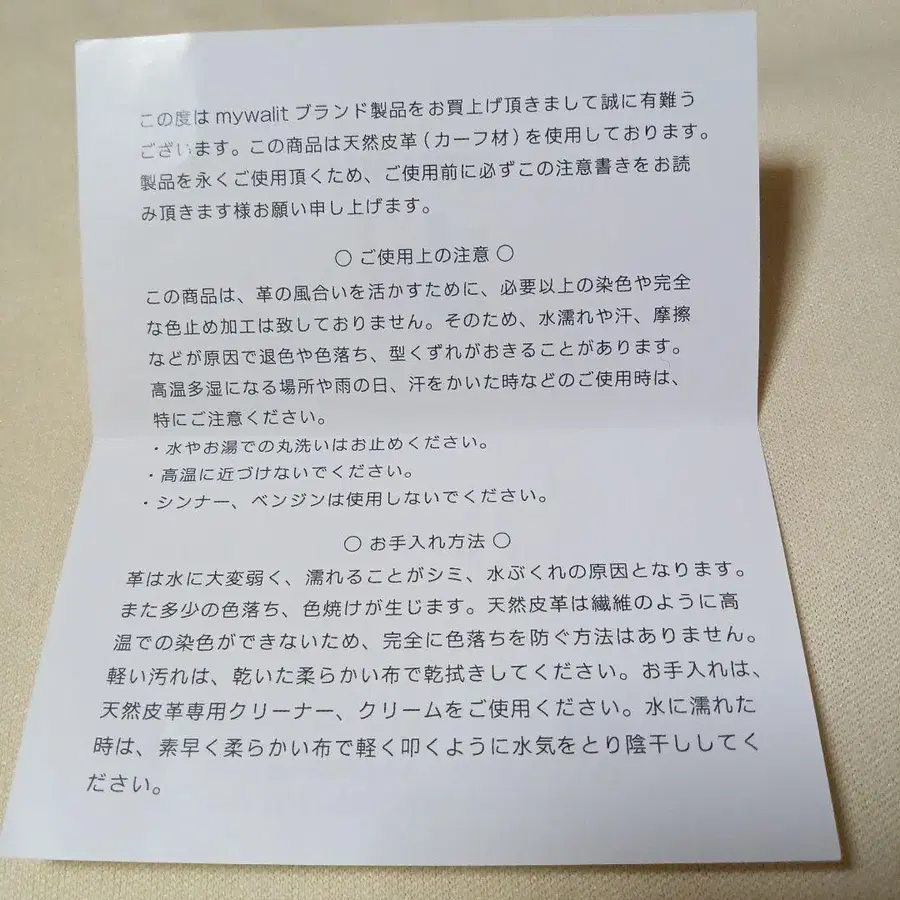 この度は mywalit ブランド製品をお買上げ頂きまして誠に有難う
ございます。この商品は天然皮革（カーフ材）を使用しております。
製品を永くご使用頂くため、ご使用前に必ずこの注意書きをお読
み頂きます様お願い申し上げます。
○ ご使用上の注意 ○
この商品は、革の風合いを活かすために、必要以上の染色や完全
な色止め加工は致しておりません。そのため、水濡れや汗、摩擦
などが原因で退色や色落ち、型くずれがおきることがあります。
高温多湿になる場所や雨の日、汗をかいた時などのご使用時は、
特にご注意ください。
・水やお湯での丸洗いはお止めください。
・高温に近づけないでください。
・シンナー、ベンジンは使用しないでください。
○ お手入れ方法 ○
革は水に大変弱く、濡れることがシミ、水ぶくれの原因となります。
また多少の色落ち、色焼けが生じます。天然皮革は繊維のように高
温での染色ができないため、完全に色落ちを防ぐ方法はありません。
軽い汚れは、乾いた柔らかい布で乾拭きしてください。お手入れは、
天然皮革専用クリーナー、クリームをご使用ください。水に濡れた
時は、素早く柔らかい布で軽く叩くように水気をとり陰干ししてく
ださい。